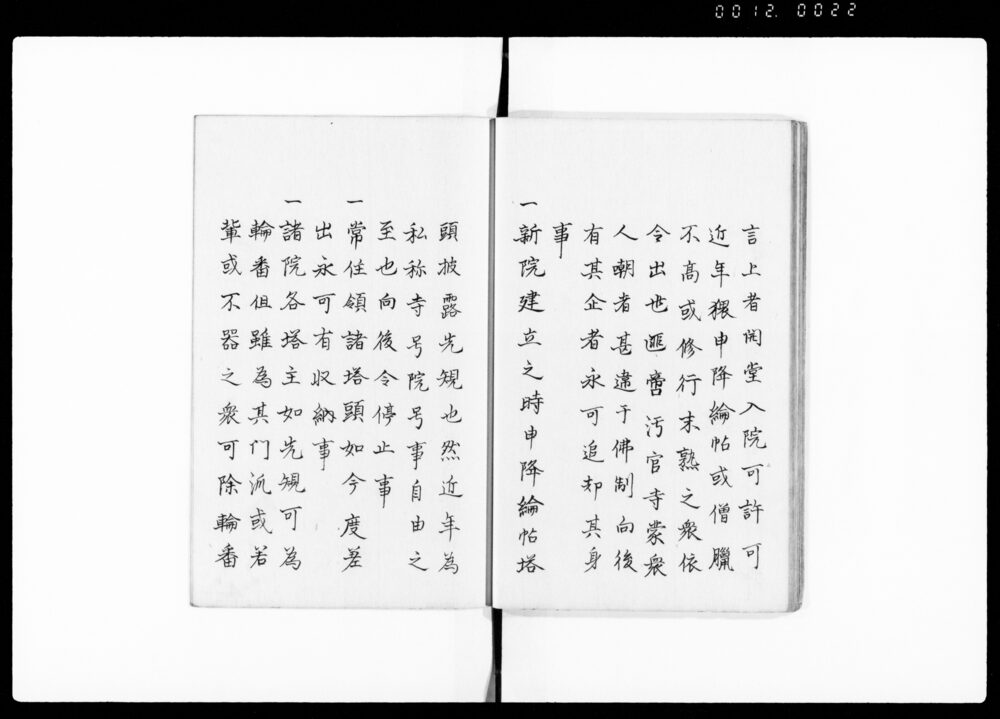 0012. 0022
言上者開堂入院可許可
近年猥申降綸帖或僧臘
不高或修行未熟之衆依
令出世匪啻汚官寺蒙衆
人嘲者甚違于佛制向後
有其企者永可追却其身
事
一新院建立之時申降綸帖塔
頭披露先規也然近年為
私称寺号院号事自由之
至也向後令停止事
一常住領諸塔頭如今度差
出永可有収納事
一諸院各塔主如先規可為
輪番但雖為其门派或若
輩或不器之衆可除輪番